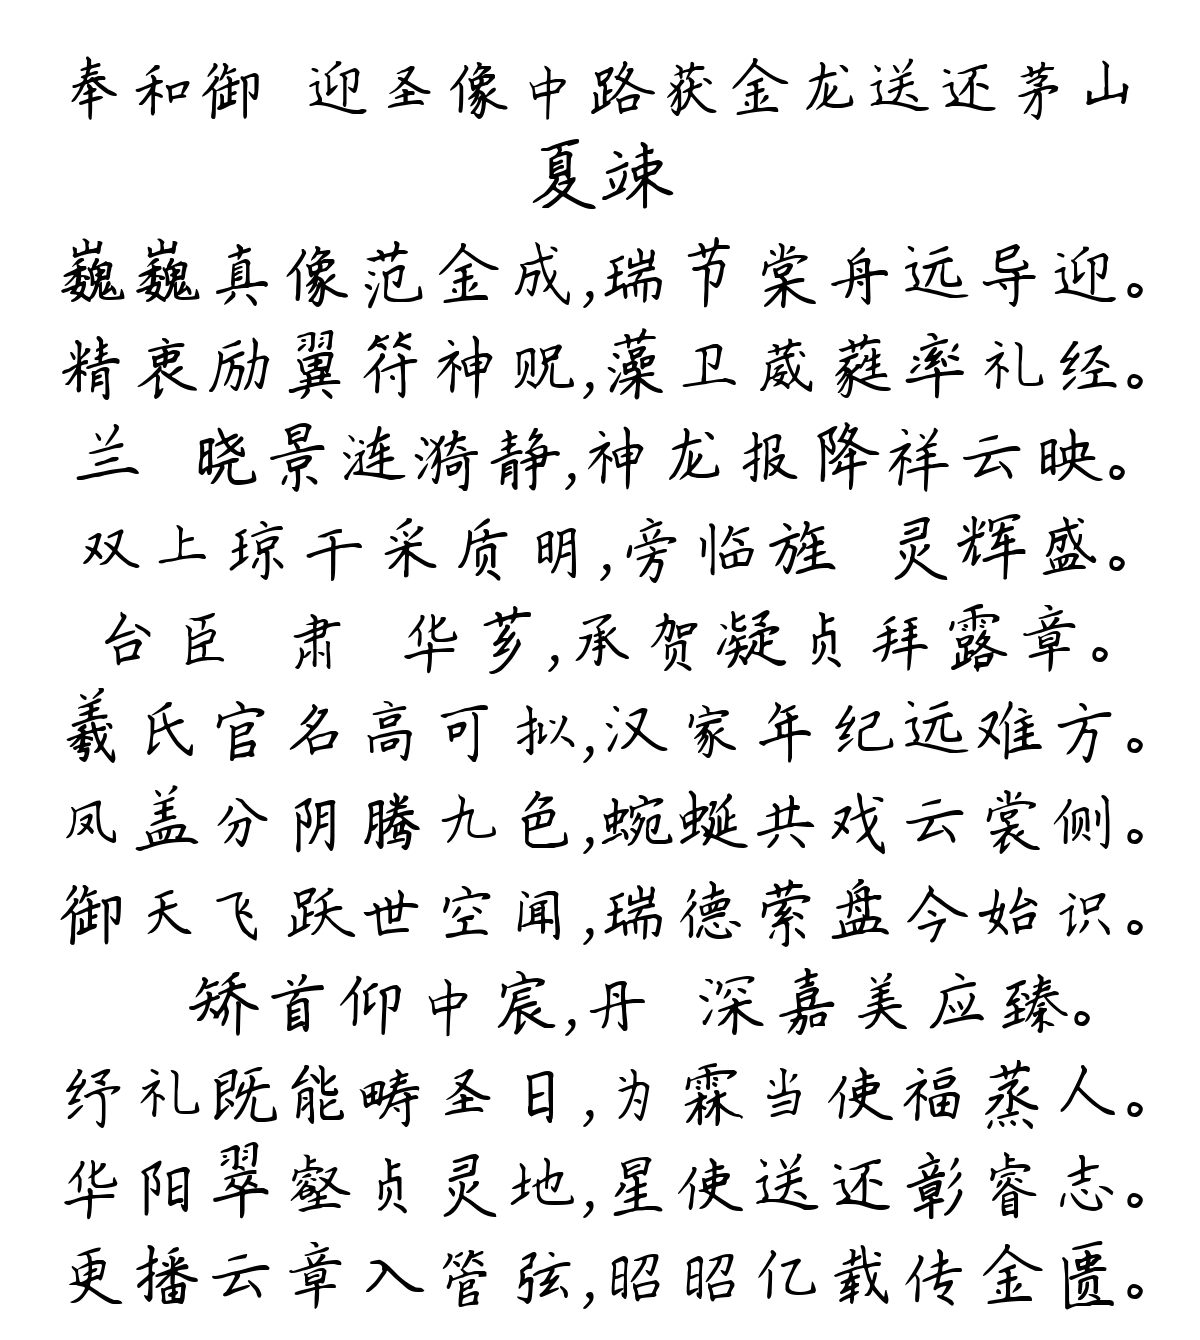 奉和御 迎圣像中路获金龙送还茅山
夏竦
巍巍真像范金成,瑞节棠舟远导迎。
精衷励翼符神贶,藻卫葳蕤率礼经。
兰 晓景涟漪静,神龙报降祥云映。
双上琼干采质明,旁临旌 灵辉盛。
台臣 肃 华芗,承贺凝贞拜露章。
羲氏官名高可拟,汉家年纪远难方。
凤盖分阴腾九色,蜿蜒共戏云裳侧。
御天飞跃世空闻,瑞德萦盘今始识。
矫首仰中宸,丹 深嘉美应臻。
纾礼既能畴圣日,为霖当使福蒸人。
华阳翠壑贞灵地,星使送还彰睿志。
更播云章入管弦,昭昭亿载传金匮。